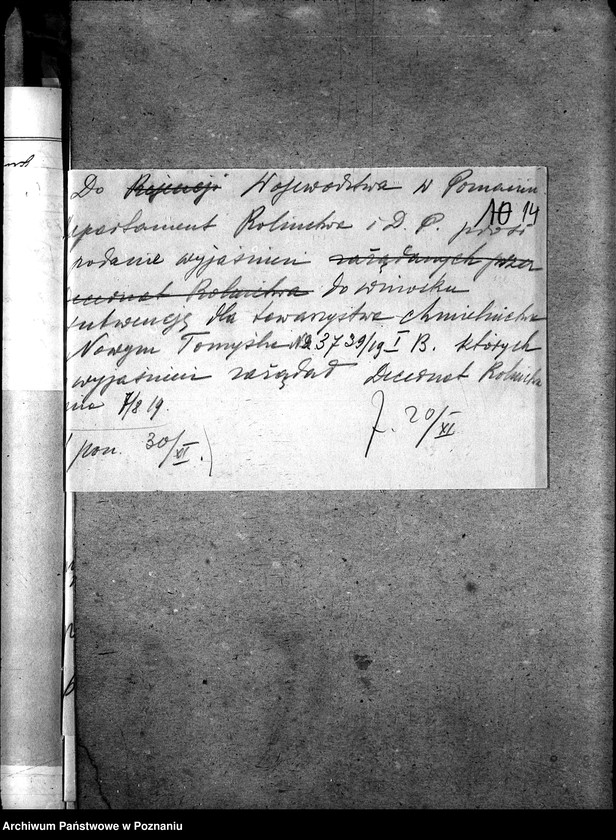 Do Rejencji Województwa w Poznaniu
10 14
epartament Rolnictwa i D. P. prosi
podanie wyjaśnień zażądanych przez
Decernat Rolnictwa do wniosku
subwencję dla towarzystwa chmielnictwa
Nowym Tomyślu № 3739/19 I B. których
wyjaśnień zażądał Decernat Rolnictwa
nia 7/8 19.
J. 20/XI
pon. 30/XI.)
Archiwum Państwowe w Poznaniu